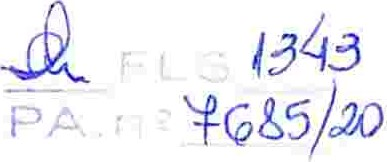 FLS 1343
PA. nº 7685/20